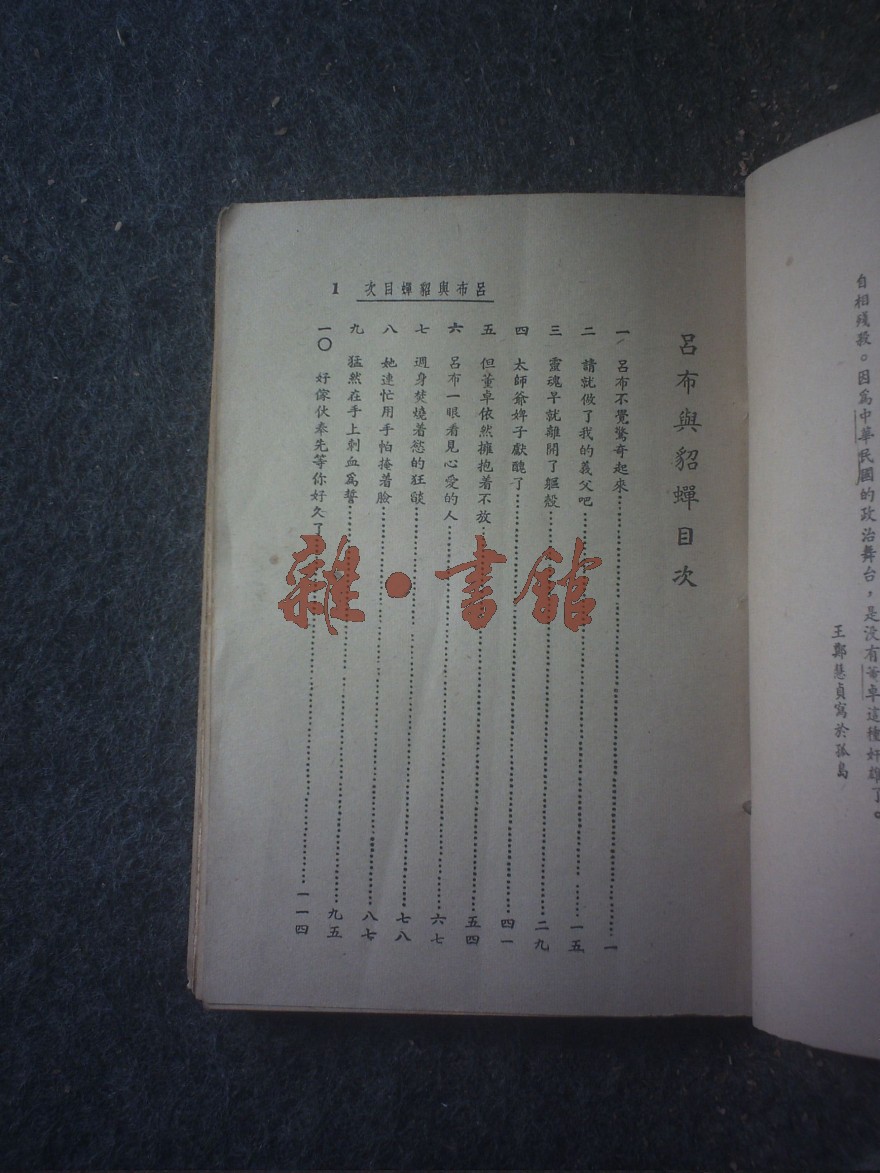 自相殘殺。因爲中華民國的政治舞台，是沒有等卓這種奸雄了。
王鄭慧貞寫於孤島
呂布與貂蟬目次
次目蟬貂與布呂 1
一 呂布不覺驚奇起來 一
二 請就做了我的義父吧 一五
三 靈魂早就離開了軀殼 二九
四 太師爺婢子獻醜了 四一
五 但董卓依然擁抱着不放 五四
六 呂布一眼看見心愛的人 六七
七 週身焚燒着慾的狂燄 七八
八 她連忙用手怕掩着臉 八七
九 猛然在手上刺血爲誓 九五
一〇 好傢伙奉先等你好久了 一一四
雜·書館